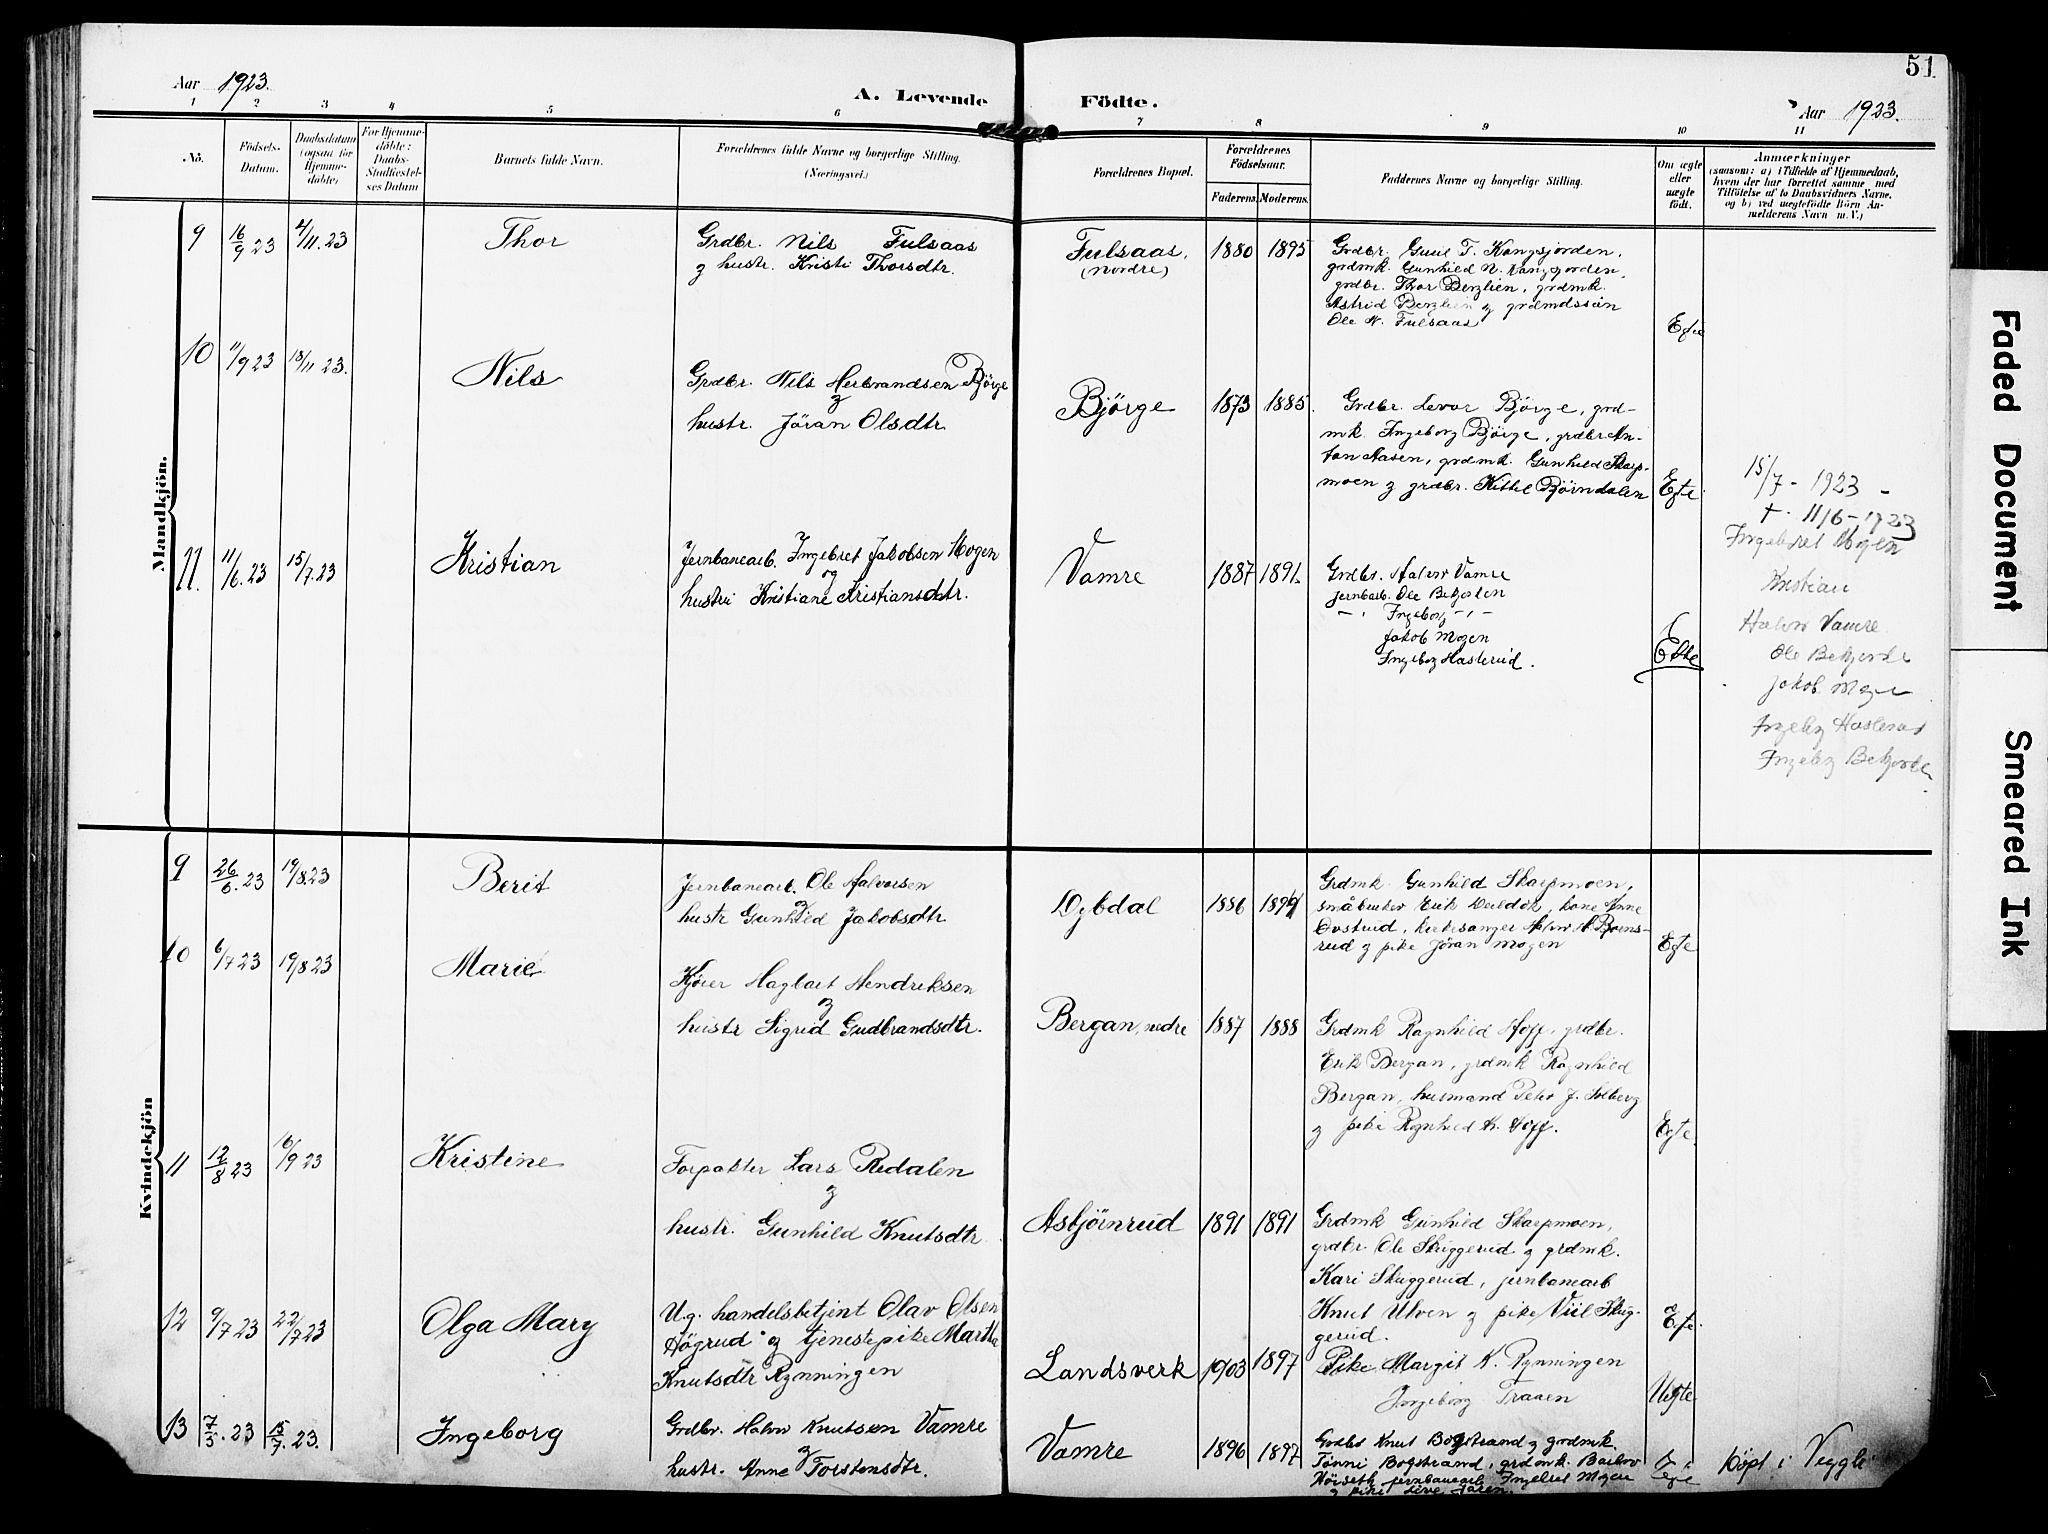 51
Aar 1923.
A. Levende Födte.
Aar 1923.
1 2 3 4 5 6 7 8 9 10 11
No.
Födsels-Datum.
Daabsdatum (ogsaa for Hjemmedöbte)
For Hjemmedöbte: Daabs-Stadfæstelses Datum
Barnets fulde Navn.
Forældrenes fulde Navne og borgerlige Stilling.
(Næringsvei.)
Forældrenes Bopæl.
Forældrenes Födselsaar.
Faderens. Moderens.
Faddernes Navne og borgerlige Stilling.
Om ægte eller uægte födt.
Anmærkninger
(saasom: a) i Tilfælde af Hjemmedaab,
hvem der har forrettet samme med
Tilföielse af to Daabsvidners Navne,
og b) ved uægtefödte Börn An-
melderens Navn m. V.)
Mandkjön.
9 16/9 23 4/11. 23 Thor
Grdbr. Nils Fulsaas
g hustr. Kristi Thorsdtr.
Fulsaas,
(nordre)
1880 1895
Grdbr. Guul T. Kongsjorden,
grdmk. Gunhild N. Kongsjorden,
grdbr. Thor Berglien, grdmk.
Astrid Berglien g grdmdssön
Ole N. Fulsaas
Egte
10 11/9 23 18/11 23. Nils
Grdbr. Nils Herbrandsen Björge
g
hustr. Jöran Olsdtr.
Björge 1873 1885.
Grdbr. Levor Björge, grd-
mk. Ingeborg Björge, grdbr An-
ton Aasen, grdmk. Gunhild Skarp-
moen g grdbr. Kittil Björndalen
Egte
11. 11/6. 23 15/7. 23 Kristian
Jernbanearb. Ingebret Jakobsen Mogen
og
hustru Kristiane Kristiansdtr.
Vamre 1887 1891.
Grdbr. Halvor Vamre
jernbarb. Ole Bekjorden
—"— Ingeborg —"—
Jakob Mogen
Ingeborg Haslerud.
Ekte
15/7 - 1923 -
+ 11/6 - 1923
Ingebret Mogen
Kristian
Halvor Vamre
Ole Bekjorde
Jakob Mogen
Ingebg Haslerud
Ingebg Bekjorde
Kvindekjön
9 26/6. 23 19/8 23 Berit
Jernbanearb. Ole Halvorsen
g
hustr Gunhild Jakobsdtr
Dybdal 1886 1894
Grdmk Gunhild Skarpmoen,
småbruker Erik Deildok, kone Anne
Ovstrud, kirkesanger Halvor A. Bjoens-
rud g pike Jöran Mogen
Egte
10 6/7 23 19/8 23 Marie
Kjörer Hagbart Hendriksen
g
hustr Sigrid Gudbrandsdtr.
Bergan, nedre 1887 1888
Grdmk Ragnhild Hoff, grdbr.
Erik Bergan, grdmk Ragnhild
Bergan, husmand Peter J. Solberg
g pike Ragnhild K. Hoff.
Egte.
11 12/8 23 16/9 23 Kristine
Forpakter Lars Rudalen
g
hustr. Gunhild Knutsdtr
Asbjörnrud 1891 1891
Grdmk Gunhild Skarpmoen,
grdbr. Ole Skuggerud g grdmk.
Kari Skuggerud, jernbanearb
Knut Ulven g pike Viil Skug-
gerud.
Egte.
12 9/7 23 22/7 23 Olga Mary
Ug. handelsbetjent Olav Olsen
Högrud og tjenestepike Martha
Knutsdtr Rynningen
Landsverk 1903 1897
Pike Margit K. Rynningen
Ingeborg Traaen
Uegte
13 7/5. 23 15/7. 23. Ingeborg
Grdbr. Halvor Knutsen Vamre
g
hustr. Anne Torstensdtr.
Vamre 1896 1897
Grdbr Knut Bogstrand g grdmk.
Tönni Bogstrand, grdmk. Barbro
Höiseth, jernbanearb Ingebret Mogen
g pike Live
Egte
Döpt i Veggli
Faded Document
Smeared Ink